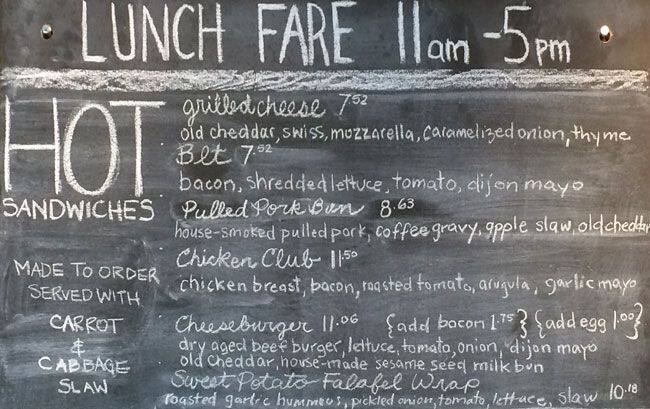 LUNCH FARE 11am - 5pm
HOT
SANDWICHES
MADE TO ORDER
SERVED WITH
CARROT
&
CABBAGE
SLAW
grilled cheese 7.52
old cheddar, swiss, mozzarella, caramelized onion, thyme
Blt 7.52
bacon, shredded lettuce, tomato, dijon mayo
Pulled Pork Bun 8.63
house-smoked pulled pork, coffee gravy, apple slaw, old cheddar
Chicken Club 11.50
chicken breast, bacon, roasted tomato, arugula, garlic mayo
Cheeseburger 11.06 {add bacon 1.75} {add egg 1.00}
dry aged beef burger, lettuce, tomato, onion, dijon mayo
old cheddar, house-made sesame seed milk bun
Sweet Potato Falafel Wrap
roasted garlic hummous, pickled onion, tomato, lettuce, slaw 10.18